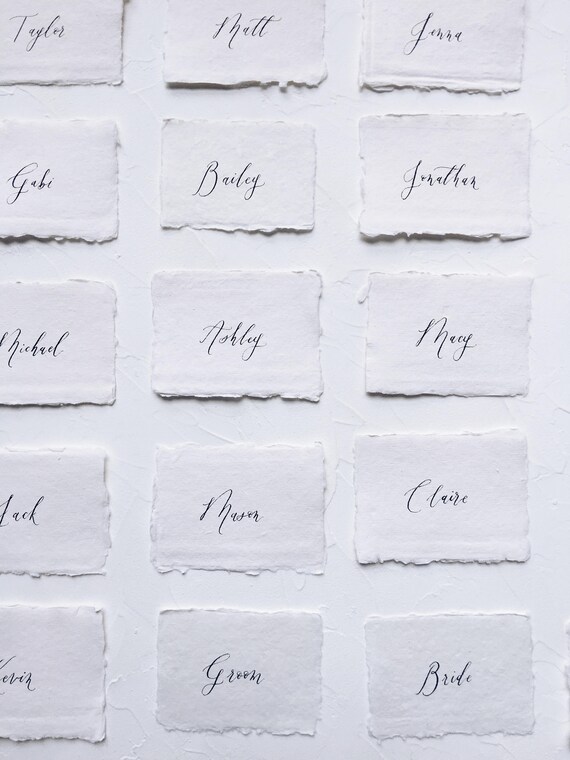 Taylor
Matt
Jenna
Gabi
Bailey
Jonathan
Michael
Ashley
Macy
Jack
Mason
Claire
Kevin
Groom
Bride